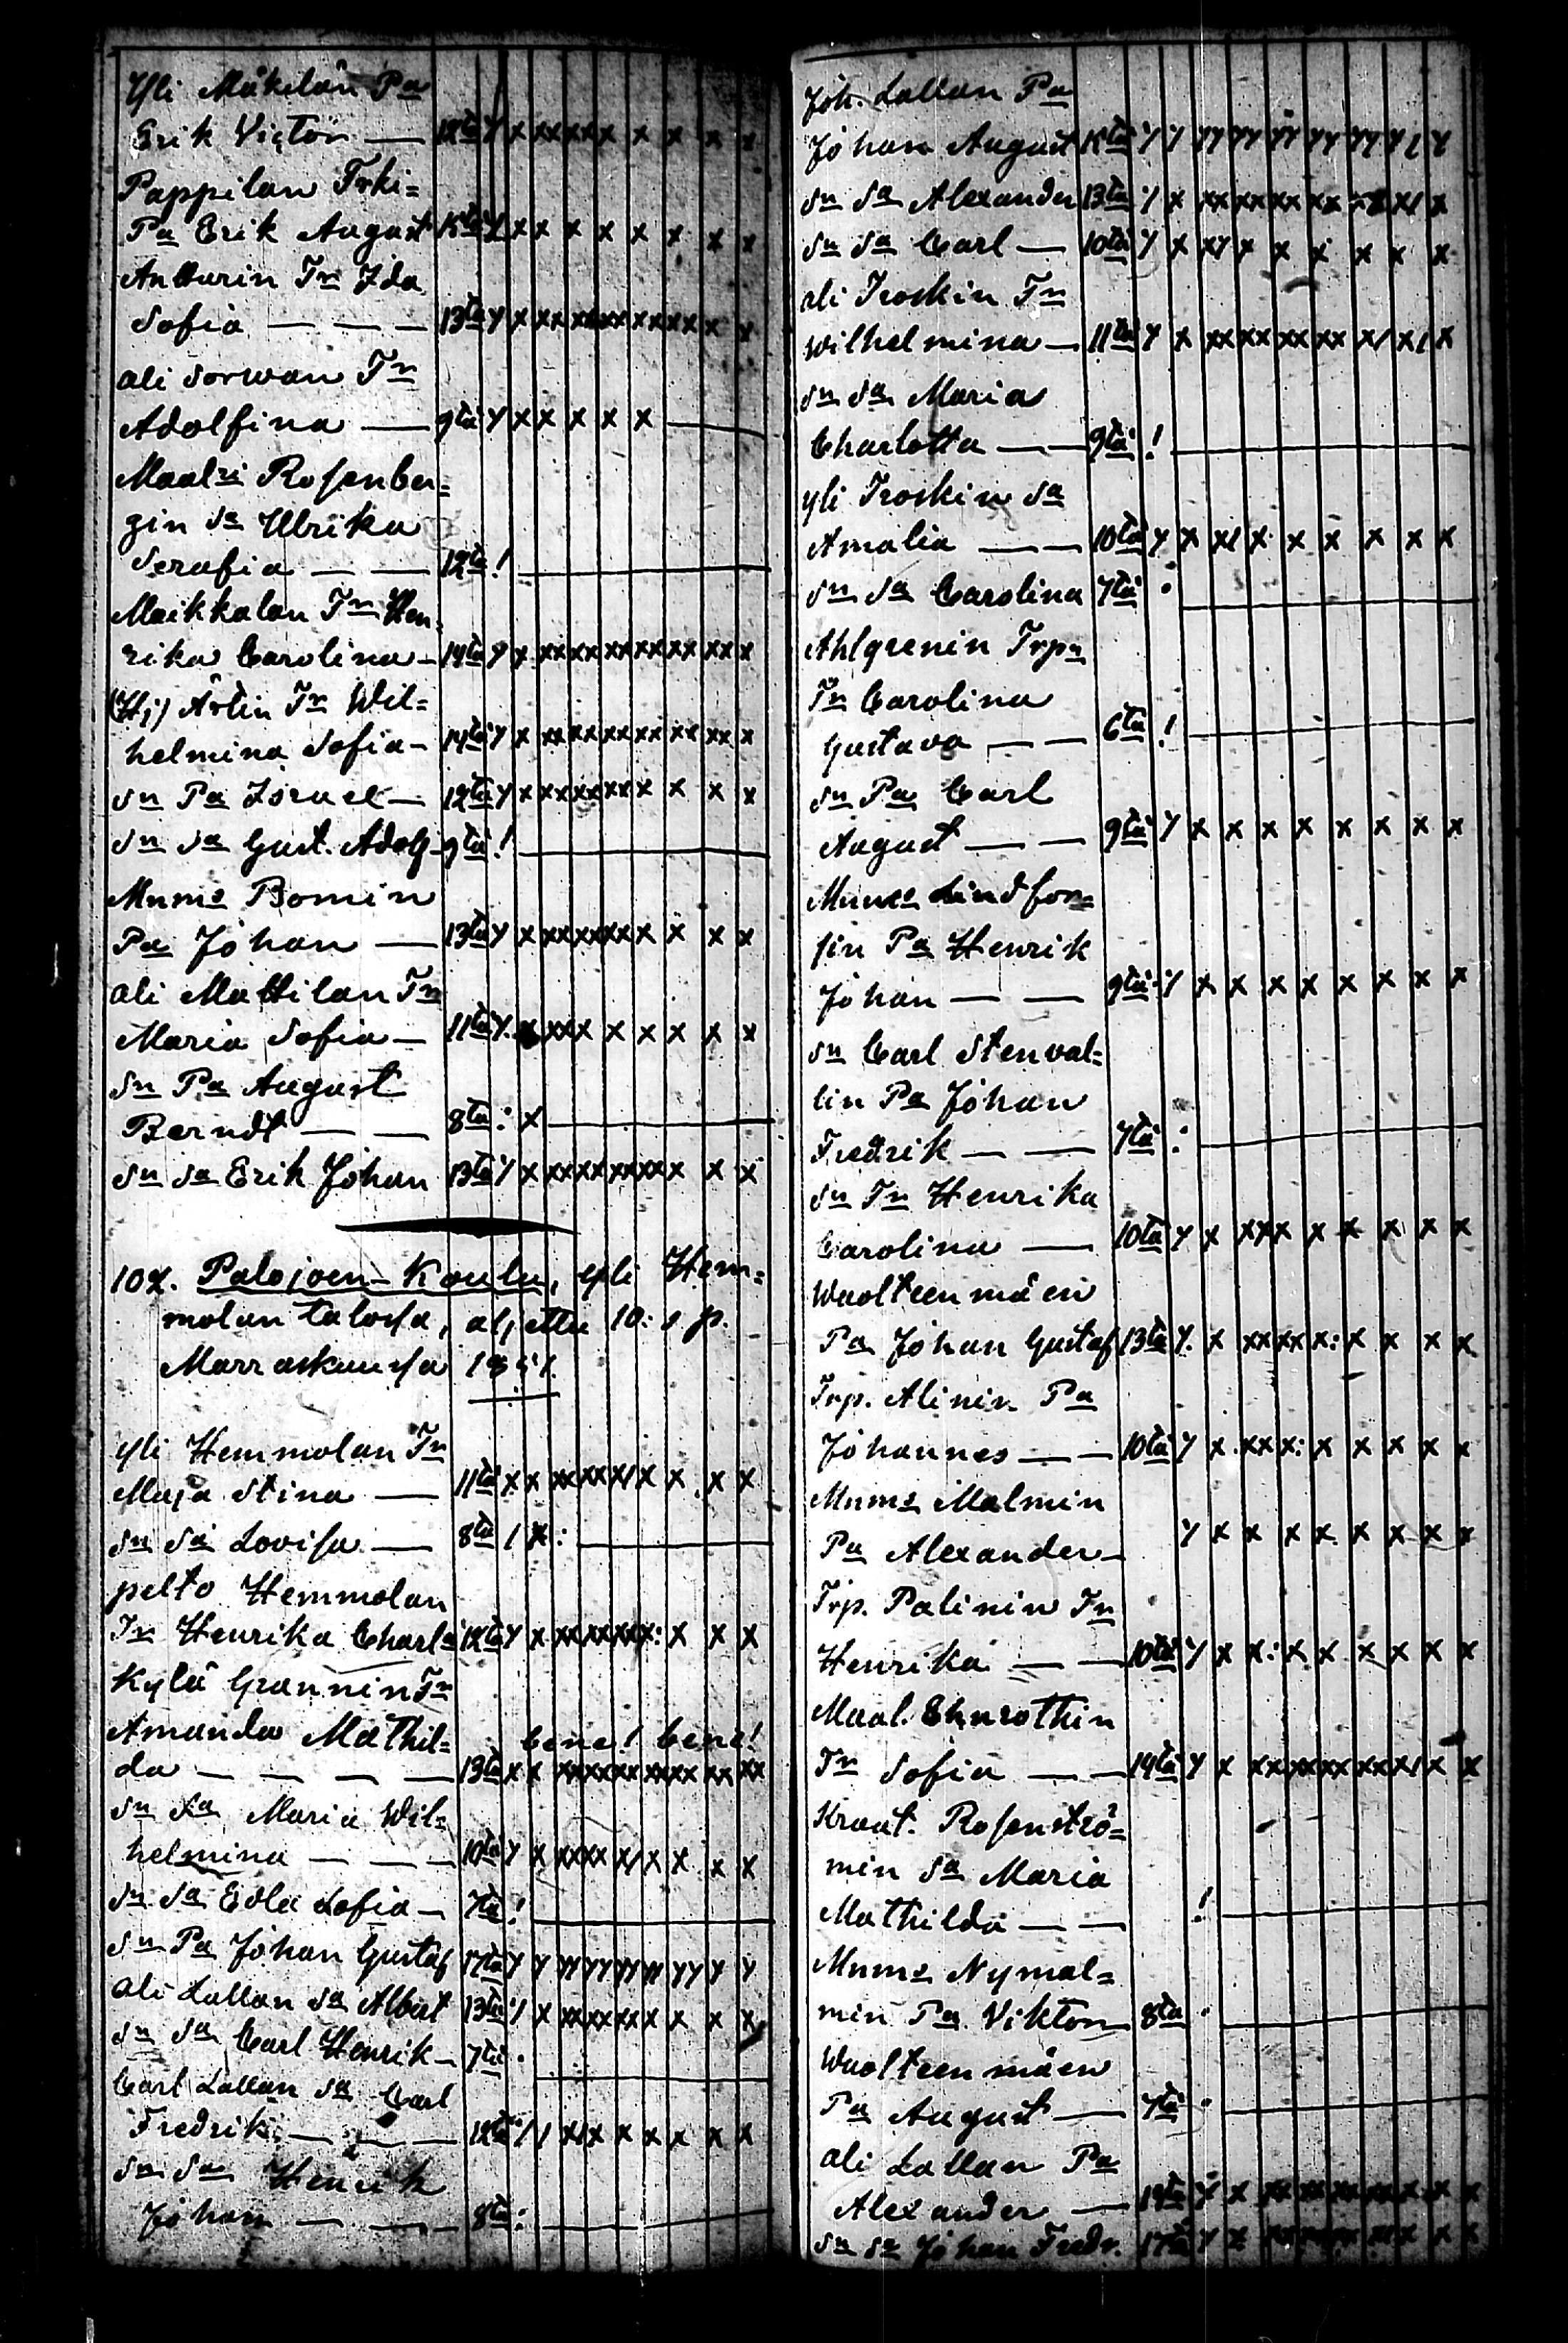 Yli Mäkilän Pa
Erik Victor — 12ta y x xx xx x x x x x
Pappilan Trki=
Pa Erik August 15ta x x x x x x x x x
Antturin Tr Ida
Sofia — — — 13ta y x xx xx xx xx x x x
ali Sorwan Tr
Adolfina — 9ta y x x x x x —
Maalri Rosenber=
gin sa Ulrika
Serafia — — 12ta ! —
Maikkalan Tr Hen=
rika Carolina — 14ta y x xx xx xx xx xx xx x
(Hj) Ärlin Tr Wil=
helmina Sofia — 14ta y x xx xx xx xx xx xx x
sn Pa Israel — 12ta y x xx xx xx x x x x
sn sa Gust. Adolf 9ta ! —
Mnms Bomin
Pa Johan — 13ta y x xx xx xx x x x x
ali Mattilan Tr
Maria Sofia — 11ta y x xx x x x x x x
sn Pa August
Berndt — — 8ta : x —
sn sa Erik Johan 13ta y x xx xx xx xx x x x
10%. Palojoen-Koulu, yli Hem=
molan talossa, aljettu 10: s p.
Marraskuussa 1851.
yli Hemmolan Tr
Maja Stina — 11ta x x xx xx x/ x x x x
sn sa Lovisa — 8ta / x : —
pelto Hemmolan
Tr Henrika Charl: 12ta y x xx xx xx : x x x
Kylä Grannin Tr
Amanda Mathil= bene! bene!
da — — — — 13ta x x xx xx xx xx xx xx xx
sn sa Maria Wil=
helmina — — — 10ta y x xx xx x/ x x x x
sn sa Edla Sofia — 7ta ! —
sn Pa Johan Gustaf 17ta y y yy yy yy yy yy y y
ali Lallan sa Albert 13ta y x xx xx xx x x x x
sn sa Carl Henrik — 7ta . —
Carl Lallan sa Carl
Fredrik — — — 12ta / / x/ x x x x x x
sn sa Henrik
Johan — — — 8ta : —
Joh. Lallan Pa
Johan August 15ta y y yy yy yy yy yy y / y
sn sa Alexander 13ta y x xx xx xx xx xx x/ x
sn sa Carl — 10ta y x xy x x x x x x
ali Troskin Tr
Wilhelmina — 11ta y x xx xx xx xx x/ x/ x
sn sa Maria
Charlotta — — 9ta ! —
yli Troskin sa
Amalia — — 10ta y x x/ x x x x x x
sn sa Carolina 7ta . —
Ahlgrenin Trpn
Tr Carolina
Gustava — — 6ta ! —
sn Pa Carl
August — — 9ta y x x x x x x x x
Mnms Lindfors=
sin Pa Henrik
Johan — — 9ta y x x x x x x x x
sn Carl Stenval=
lin Pa Johan
Fredrik — — 7ta : —
sn Tr Henrika
Carolina — 10ta y x xx x x x x x x
Wuolteenmäen
Pa Johan Gustaf 13ta y x xx xx x: x x x x
Trp. Alinin Pa
Johannes — — 10ta y x xx x: x x x x x
Mnms Malmin
Pa Alexander — y x x x x x x x x
Trp. Palinin Tr
Henrika — — 10ta y x x: x x x x x x
Maal. Ehnrothin
Tr Sofia — — 14ta y x xx xx xx xx x/ x x
Kraat. Rosenströ=
min sa Maria
Mathilda — — ! —
Mnms Nymal=
min Pa Viktor — 8ta . —
Wuolteenmäen
Pa August — 7ta . —
ali Lallan Pa
Alexander — 19ta y x xx xx xx xx x x x
sn sa Johan Fredr. 17ta y x xx xx xx xx x x x